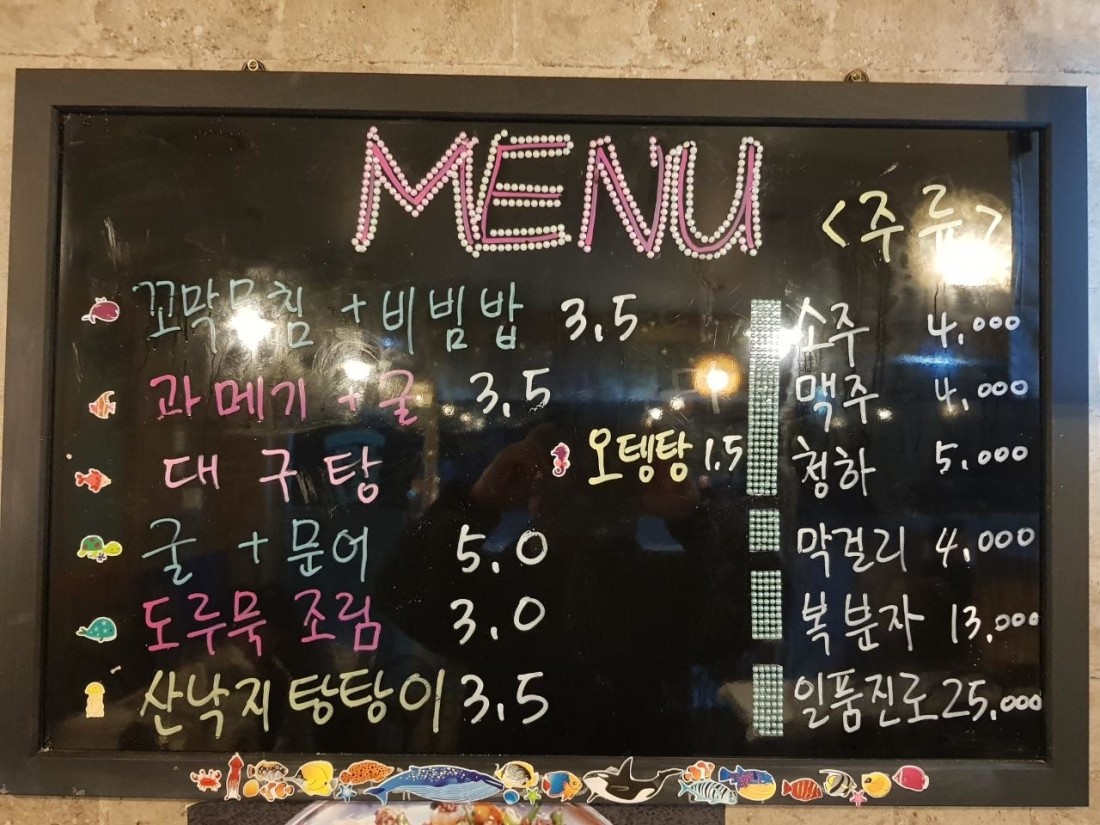 MENU
<주류>
꼬막무침 + 비빔밥 3,5
과메기 + 굴 3,5
대구탕
오뎅탕 1.5
굴 + 문어 5.0
도루묵 조림 3.0
산낙지 탕탕이 3,5
소주 4,000
맥주 4,000
청하 5,000
막걸리 4,000
복분자 13,000
일품진로 25,000